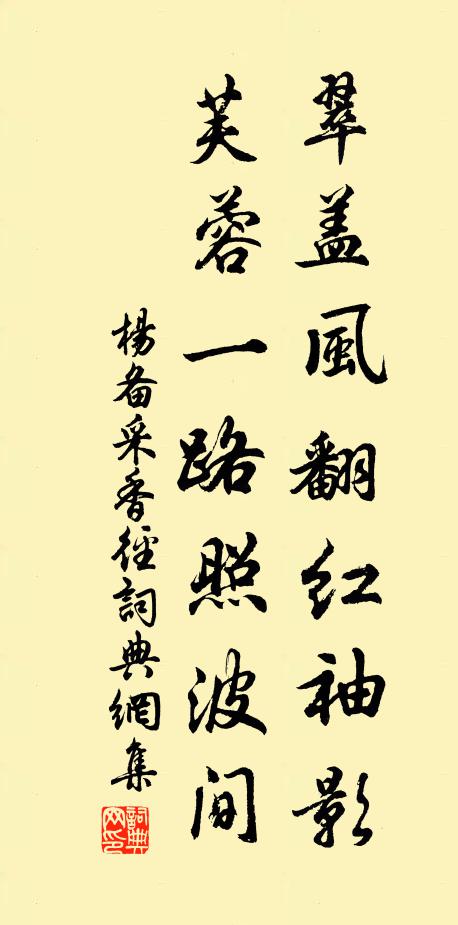 翠盖風翻红袖影
芙蓉一路照波间
楊备采香徑詞典網集
詞典网印